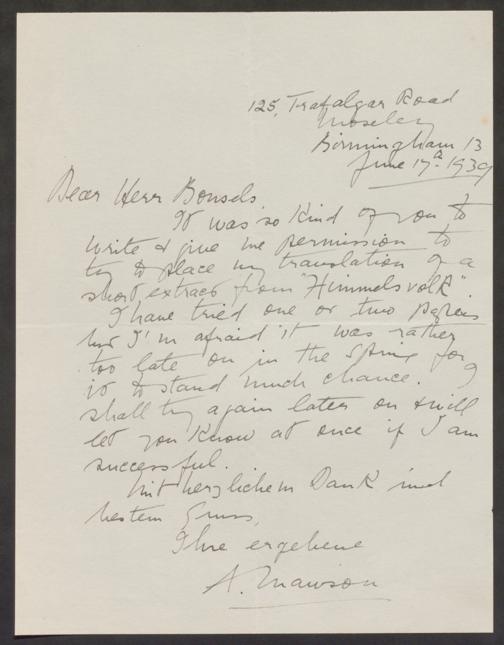 125, Trafalgar Road
Moseley
Birmingham 13
June 17th 1939
Dear Herr Bonsels.
It was so kind of you to
write & give me permission to
try to place my translation of a
short extract from "Himmelsvolk".
I have tried one or two papers
but I'm afraid it was rather
too late on in the Spring for
it to stand much chance. I
shall try again later on & will
let you know at once if I am
successful.
Mit herzlichem Dank und
bestem Gruss,
Ihre ergebene
A. Mawson